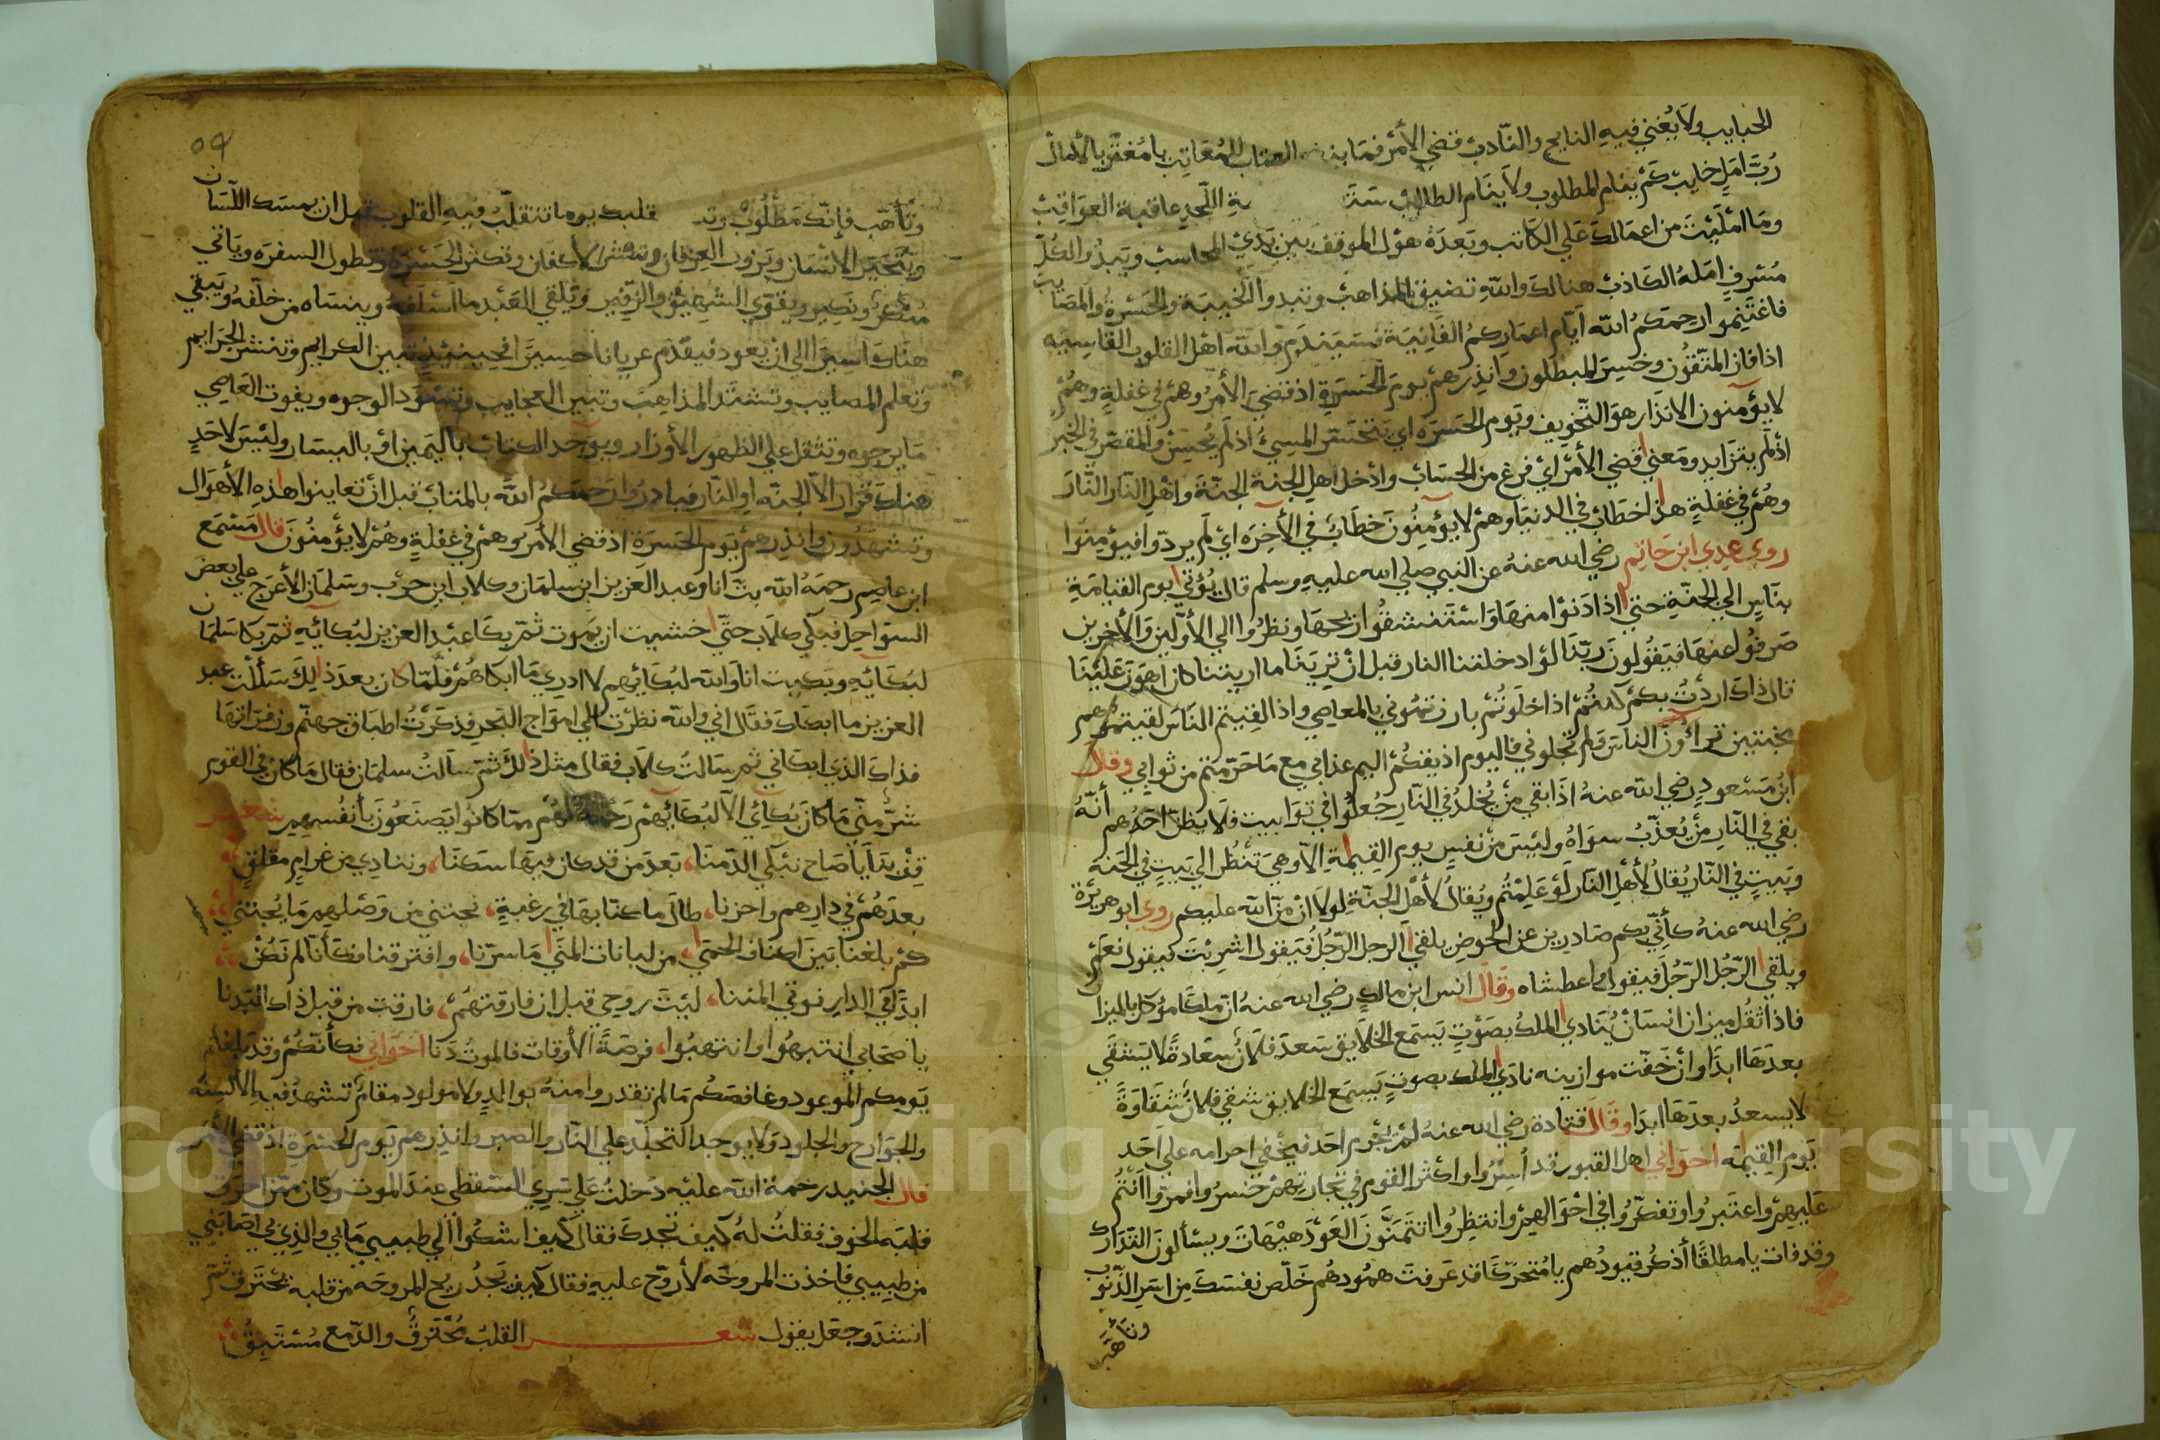 الحبايب ولا يغني فيه النايح والنادب قضي الأمر فما العتاب للمعاتب يا مغتر بالأمال
رب امل خايب كم ينام المطلوب ولا ينام الطالب اللحد عاقبة العواقب
وما امليت من اعمالك علي الكاتب وبعده هول الموقف بين يدي المحاسب ويبدوا لكل
مسرف امله الكاذب هنالك والله تضيق المذاهب وتبدوا الخيبة والحسرة والمصايب
فاغتنموا رحمكم الله ايام اعماركم الفانية والله اهل القلوب القاسيه
اذا فاز المتقون وخسر المبطلون وانذرهم يوم الحسرة اذ قضي الأمر وهم في غفلة وهم
لا يؤمنون الانذار هو التخويف ويوم الحسره اي يتحسر المسيئ اذ لم يحسن والمقصر في الخير
اذ لم يتزايد ومعني قضي الأمر اي فرغ من الحساب وادخل اهل الجنة الجنة واهل النار النار
وهم في غفلة هذا خطاب في الدنيا وهم لا يؤمنون خطاب في الأخره اي لم يردوا فيؤمنوا
روي عدي ابن حاتم رضي الله عنه عن النبي صلي الله عليه وسلم قال يؤتي يوم القيامة
بناس الي الجنة حتي اذا دنوا منها واستنشقوا ريحها ونظروا الي الأولين والأخرين
صرفوا عنها فيقولون ربنا لو ادخلتنا النار قبل ان ترينا ما اريتنا كان اهون علينا
قال ذاك اردت بكم كنتم اذا خلوتم بارزتموني بالمعاصي واذا لقيتم الناس لقيتموهم
مخبتين تراؤن الناس ولم تجلوني فاليوم اذيقكم اليم عذابي مع ما حرمتم من ثوابي وقال
ابن مسعود رضي الله عنه اذا بقي من يخلد في النار جعلوا في توابيت فلا يظن احدهم أنه
بقي في النار من يعذب سواه وليس من نفس يوم القيمة الا وهي تنظر الي بيت في الجنة
وبيت في النار يقال لأهل النار لو عليتم ويقال لأهل الجنة لولا ان من الله عليكم روي ابو هريرة
رضي الله عنه كأني بكم صادرين عن الحوض يلقي الرجل الرجل فيقول اشربت فيقول نعم
ويلقي الرجل الرجل فيقول وا عطشاه وقال انس ابن مالك رضي الله عنه ان ملكا موكل بالميزان
فاذا ثقل ميزان انسان ينادي الملك بصوت يسمع الخلايق سعد فلان سعادة لا يشقي
بعدها ابدا وان خفت موازينه نادي الملك بصوت يسمع الخلايق شقي فلان شقاوة
لا يسعد بعدها ابدا وقال قتادة رضي الله عنه لم يجرم احد في احرامه علي احد
يوم القيمة اخواني اهل القبور قد اسروا واكثر القوم في تجارتهم خسروا فمروا انتم
عليهم واعتبروا وتفكروا في احوالهم وانتظروا تتمنون العود هيهات ويسألون التدارك
وقد فات يا مطلقا أذكر قيودهم يا متحركا قد عرفت همودهم خلص نفسك من اسر الذنوب
وتأهب
٥٩
وتأهب فإنك مطلوب قلبك يوما تتقلب فيه القلوب قبل ان يمسك اللسان
ويتحير الانسان ويزول العرفان وتنشر الاكفان وتكثر الحسره وتطول السفره وياتي
منكر ونكير ويقوي الشهيق والزفير ويلقي العبد ما اسلفه وينساه من خلفه ويبقي
هناك اسيرا الي ان يعود فيقدم عريانا حسيرا فحينئذ تبين الكرايم وتنشر الجرايم
وتعلم المصايب وتشتد المذاهب وتبين العجايب وتسود الوجوه ويفوت العاصي
ما يرجوه وتثقل علي الظهور الأوزار ويوخد الكتاب باليمين او باليسار وليس لاحد
هناك قرار الا الجنه او النار فبادروا رحمكم الله بالمتاب قبل ان تعاينوا هذه الأهوال
وتشهدون وانذرهم يوم الحسرة اذ قضي الأمر وهم في غفلة وهم لا يؤمنون قال مسمع
ابن عاصم رحمه الله بت انا وعبد العزيز ابن سلمان وكلاب ابن حرب وسلمان الأعرج علي بعض
السواحل فبكي كلاب حتي خشيت ان يموت ثم بكا عبد العزيز لبكائه ثم بكا سلمان
لبكائه وبكيت انا والله لبكائهم لا ادري ما ابكاهم فلما كان بعد ذلك سألت عبد
العزيز ما ابكاك فقال اني والله نظرت الي امواج البحر فذكرت اطباق جهنم وزفراتها
فذاك الذي ابكاني ثم سالت كلاب فقال مثل ذلك ثم سالت سلمان فقال ما كان في القوم
شر مني ما كان بكائي الا لبكائهم رحمة لهم مما كانوا يصنعون بأنفسهم شعر
قف بنا يا صاح نبكي الدمنا، بعد من قد كان فيها سكنا، وننادي من غرام مقلق
بعدهم في دارهم واحزنا، طال ما كنا بها في رغبة، نجتني من وصلهم ما يجتني
كم بلغنا بين اكناف الحمي، من لبانات المني ما سرنا، وافترقنا فكأنا لم نكن
ابدا في الدار نوفي المننا، ليت روحي قبل ان فارقتهم، فارقت من قبل ذاك البدنا
يا صحابي انتبهوا وانتهبوا، فرصة الأوقات فالموت دنا اخواني فكأنكم وقد
يومكم الموعود وغافصكم ما لم تقدروا منه بوالد ولا مولود مقام تشهد فيه الألسنه
والجوارح والجلود ولا يوجد التجلد علي النار والصبر وانذرهم يوم الحسرة اذ قضي الأمر
قال الجنيد رحمة الله عليه دخلت علي سري السقطي عند الموت وكان ممن احرق
قلبه الخوف فقلت له كيف تجدك فقال كيف اشكوا الي طبيبي ما بي والذي بي اصابني
من طبيبي فاخذت المروحه لأروح عليه فقال كيف يجد ريح المروحه من قلبه يحترق ثم
انشد وجعل يقول شعر القلب محترق والدمع مستبق